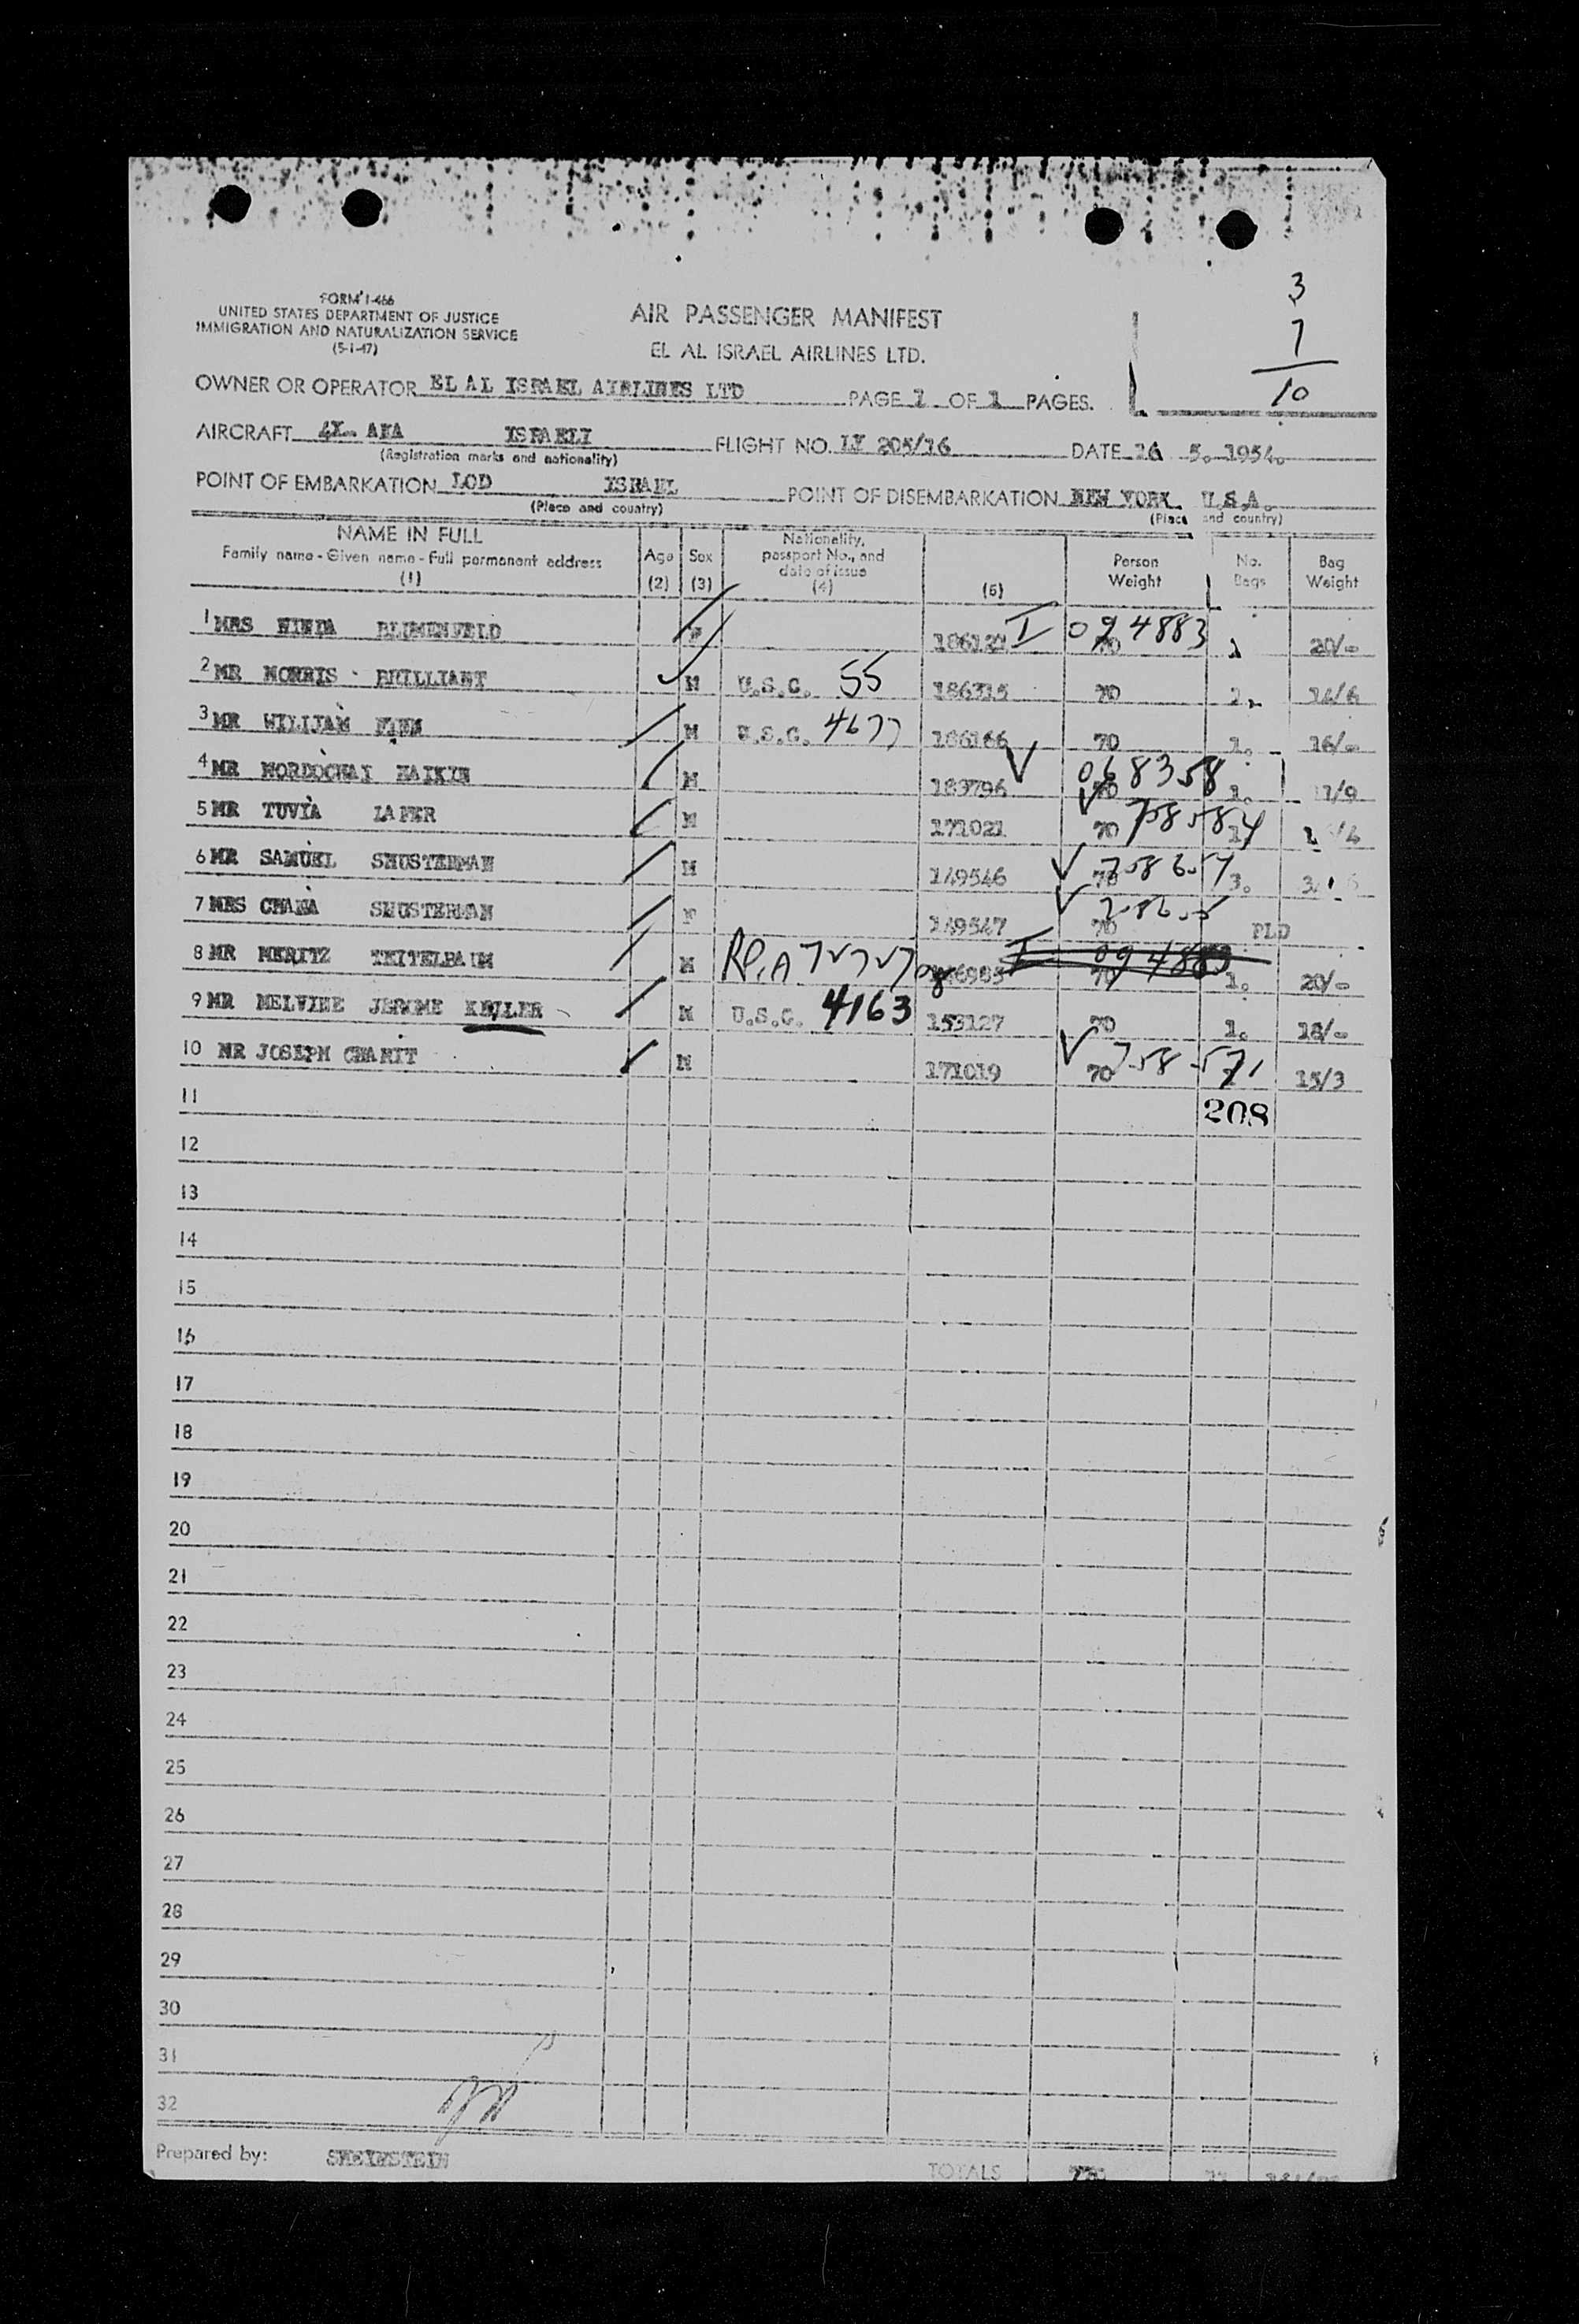 3
7
10
FORM I-466
UNITED STATES DEPARTMENT OF JUSTICE
IMMIGRATION AND NATURALIZATION SERVICE
(5-1-47)
AIR PASSENGER MANIFEST
EL AL ISRAEL AIRLINES LTD.
OWNER OR OPERATOR EL AL ISRAEL AIRLINES LTD PAGE 1 OF 1 PAGES.
AIRCRAFT 4X- AKA ISRAELI FLIGHT NO. LY 205/16 DATE 16 5. 1954.
(Registration marks and nationality)
POINT OF EMBARKATION LOD ISRAEL POINT OF DISEMBARKATION NEW YORK U.S.A.
(Place and country) (Place and country)
NAME IN FULL
Family name - Given name - Full permanent address
(1)
Age
(2)
Sex
(3)
Nationality, passport No., and date of issue
(4)
(5)
Person Weight
No. Bags
Bag Weight
1 MRS BLUMENFELD F I 094883 70 20/-
2 MR MORRIS BRILLIANT M U.S.C. 55 186315 70 14/6
3 MR WILLIAM M U.S.C. 4677 186166 70 1. 16/-
4 MR MORDOCHAI ZAIKIN M 183796 068358 1. 11/9
5 MR TUVIA M 171021 70
6 MR SAMUEL SHUSTERMAN M 149546 70 3.
7 MRS CHANA SHUSTERMAN F 149547 70 PLD
8 MR MERITZ TEITELBAUM M I 094883 70 1. 20/-
9 MR MELVINE JEROME KELLER M U.S.C. 4163 153127 70 1. 18/-
10 MR JOSEPH CHARIT M 171019 70 15/3
11 208
12
13
14
15
16
17
18
19
20
21
22
23
24
25
26
27
28
29
30
31
32
Prepared by: SHEINSTEIN TOTALS